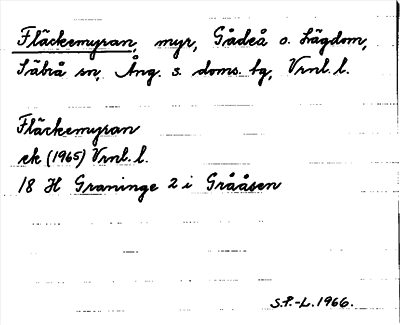 Fläckemyran, myr, Gådeå o. Lägdom,
Säbrå sn, Ång. s. doms. tg, Vrnl. l.
Fläckemyran
ek (1965) Vrnl. l.
18 H Graninge 2 i Grååsen
S.P.-L. 1966.